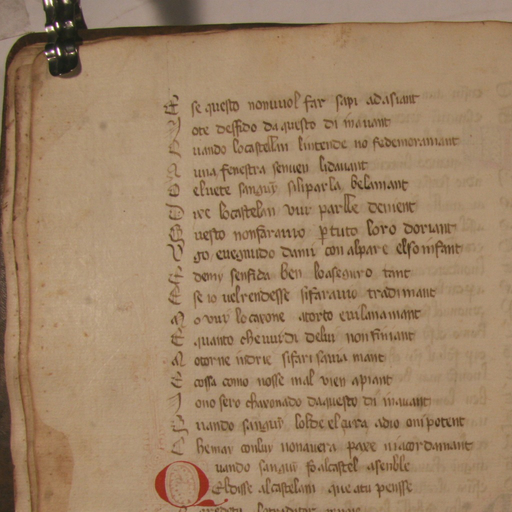 E se questo nonvuol far sapi adasiant
I ote desfido da questo di inavant
Q uando locastelan lintende no fedemoramant
A una fenestra senven lidavant
O elvete sanguis siliparla belamant
D ire locastelan vui parlle denient
Q uesto nonfaravio p tuto loro doriant
U go evegnudo danu con alpare elso infant
E demi senfida ben loaseguro tant
E se io uelrendesse sifaravio tradimant
N o vui locarone atorto evilanamant
E quanto che vuidi delui non finiant
A otorne indrie sifari savia mant
E cossa como nosse mal vien apiant
I ono sero chavonado daquesto di inavant
Q uando sanguis lolde elçura adio onipotent
C hemai conlui nonavera paxe niacordamant
Quando sanguis fo alcastel asenble
E ldisse alcastelani que atu pensse